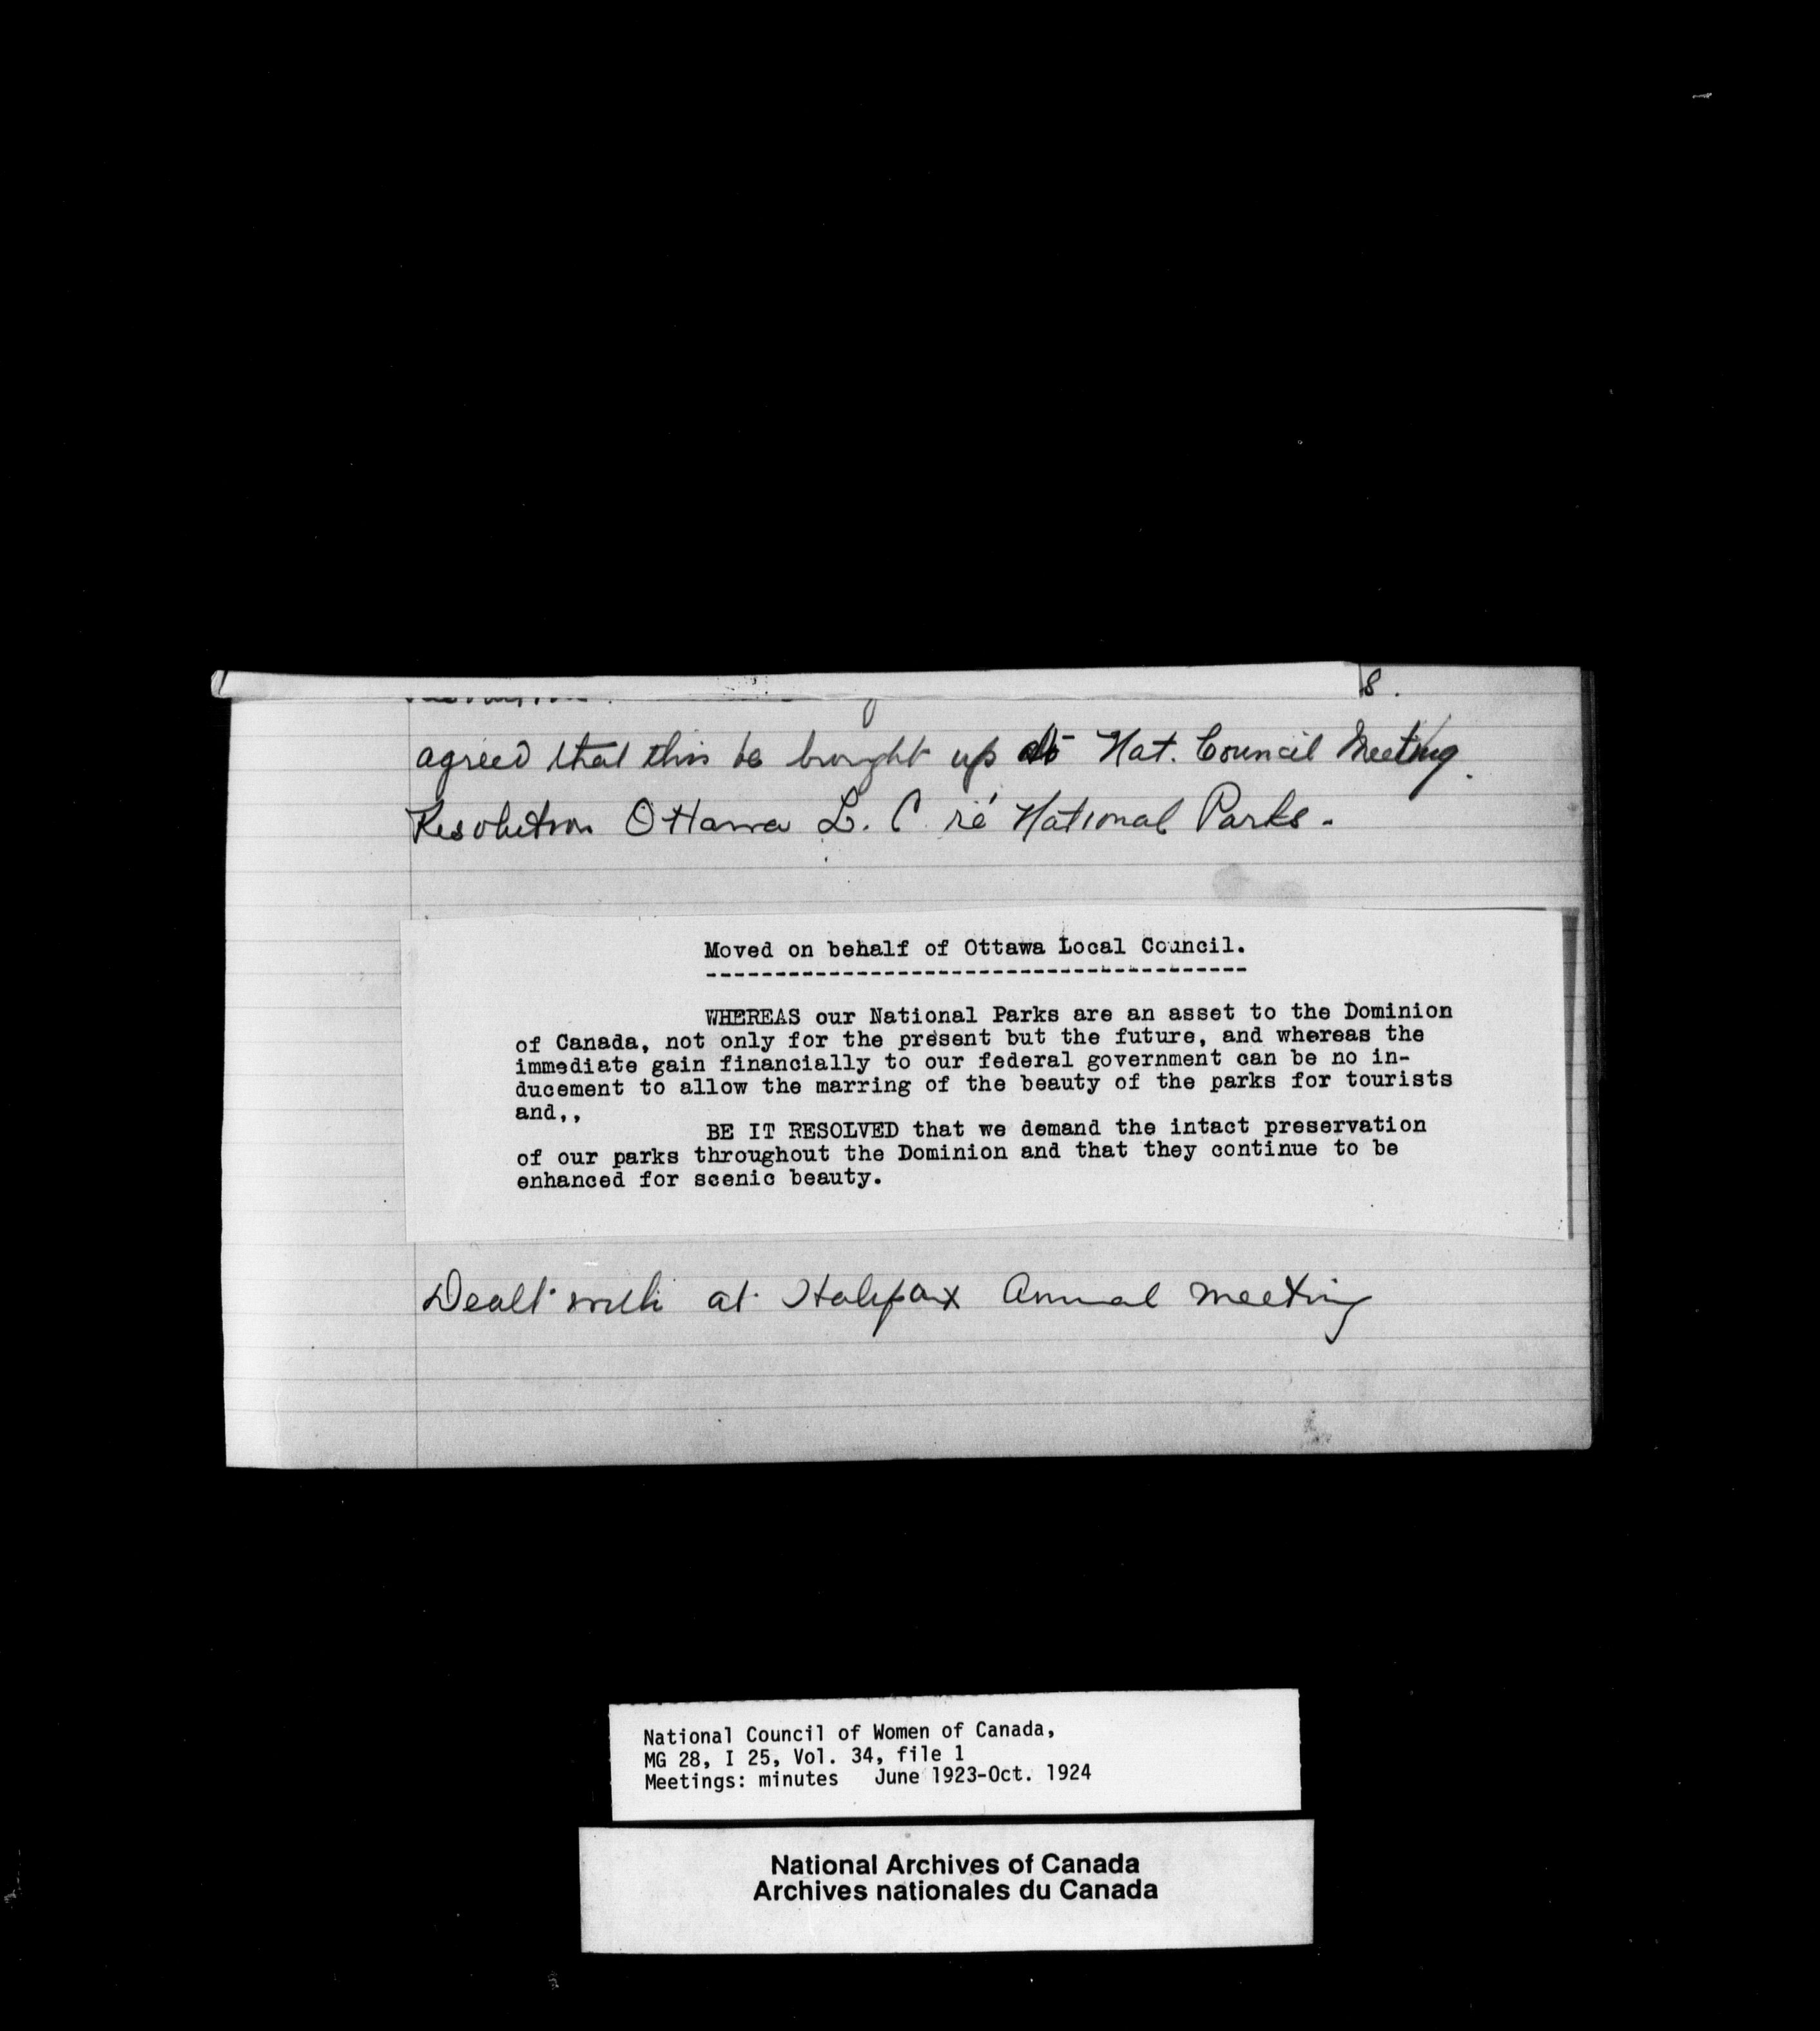 8.
agreed that this be brought up at Nat. Council Meeting.
Resolution Ottawa L. C. ré National Parks.
Moved on behalf of Ottawa Local Council.
---------------------------------------
WHEREAS our National Parks are an asset to the Dominion
of Canada, not only for the present but the future, and whereas the
immediate gain financially to our federal government can be no in-
ducement to allow the marring of the beauty of the parks for tourists
and,,
BE IT RESOLVED that we demand the intact preservation
of our parks throughout the Dominion and that they continue to be
enhanced for scenic beauty.
Dealt with at Halifax Annual meeting
National Council of Women of Canada,
MG 28, I 25, Vol. 34, file 1
Meetings: minutes June 1923-Oct. 1924
National Archives of Canada
Archives nationales du Canada